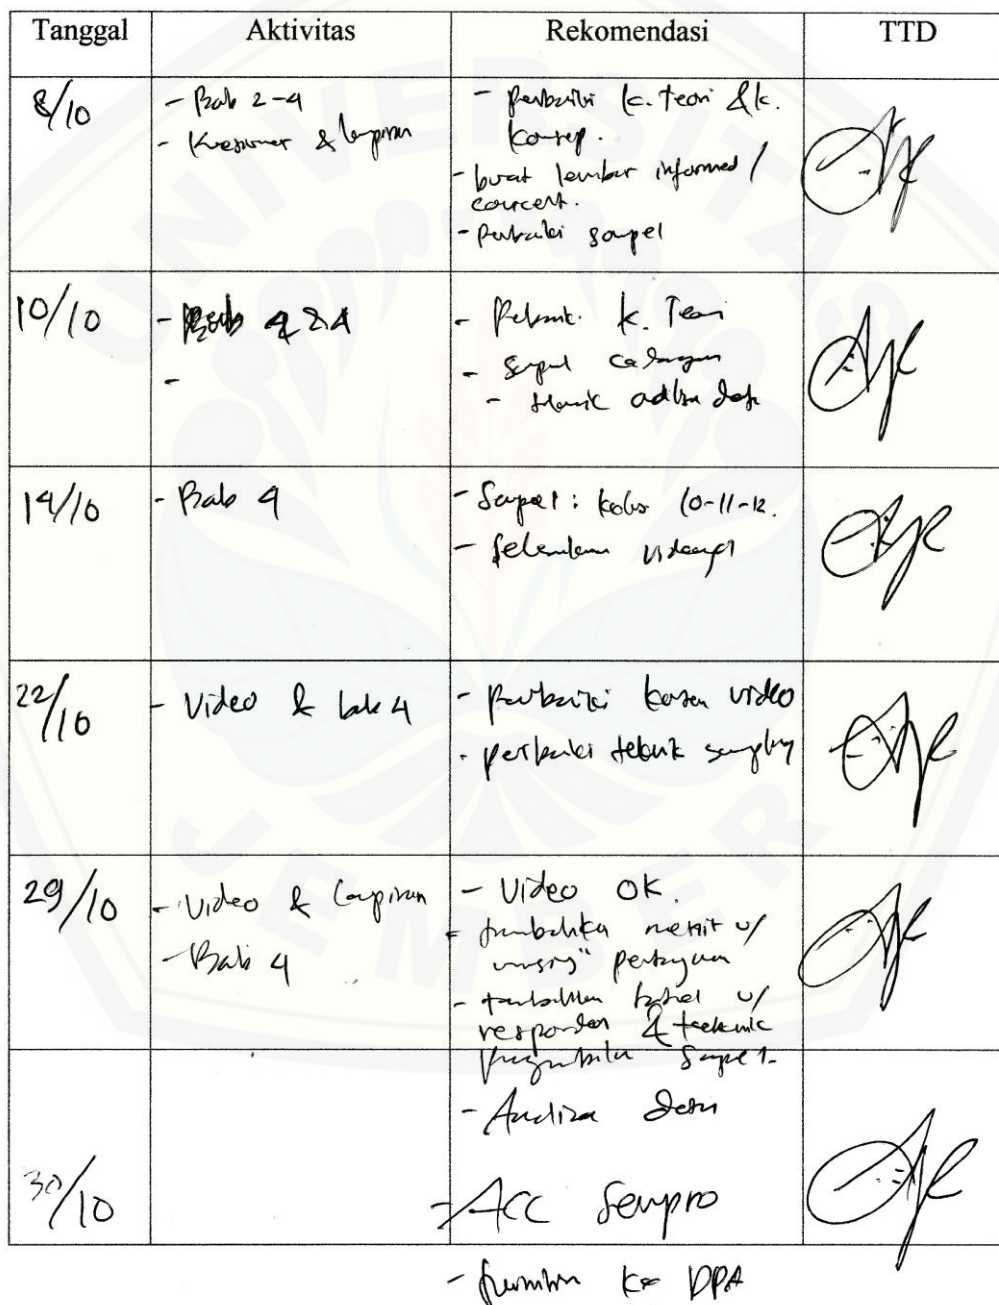 Tanggal Aktivitas Rekomendasi TTD
8/10
- Bab 2-4
- Kuesioner & lampiran
- perbaiki k. teori & k.
konsep.
- buat lembar informed /
concent.
- perbaiki sampel
10/10
- Bab 4
-
- k. Teori
- sampel cadangan
- teknik
14/10
- Bab 4
- Sampel : kelas 10-11-12.
- videonya
22/10
- Video & bab 4
- perbaiki video
- perbaiki teknik sampling
29/10
- Video & lampiran
- Bab 4
- Video OK.
- tambahkan u/
pertanyaan
- tambahkan u/
responden & teknik
sampel.
- Analisa data
30/10
- ACC Sempro
- ke DPA
UNIVERSITAS
JEMBER